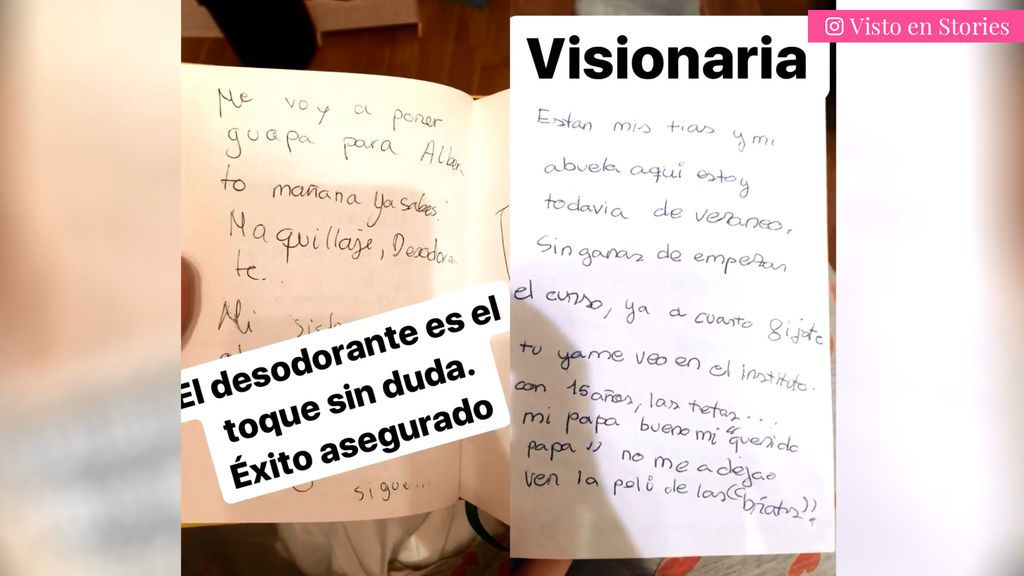 Visto en Stories
Me voy a poner
guapa para Alber
to mañana ya sabes.
Maquillaje, Desodoran
te...
Mi
El desodorante es el
toque sin duda.
Éxito asegurado
sigue...
Visionaria
Estan mis tias y mi
abuela aquí estoy
todavia de veraneo.
Sin ganas de empezar
el curso, ya a cuarto fijate
tu yame veo en el instituto.
con 15 años, las tetas...
mi papa bueno mi "querido
papa" no me a dejao
ver la peli de las